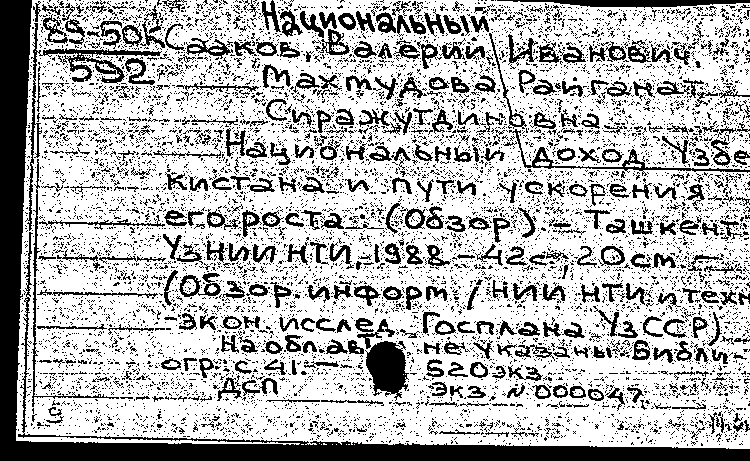 Национальный
89-50к Сааков, Валерий Иванович,
592
Махмудова, Райганат
Сиражутдиновна
Национальный доход Узбе
кистана и пути ускорения
его роста : (Обзор). - Ташкент:
УзНИИНТИ, 1988 - 42с.; 20см. -
(Обзор. информ. / НИИ НТИ и техн
-экон. исслед. Госплана УзССР)
На обл. авт. не указаны. Библи-
огр.: с 41. - 520экз.
ДСП Экз. N 000047